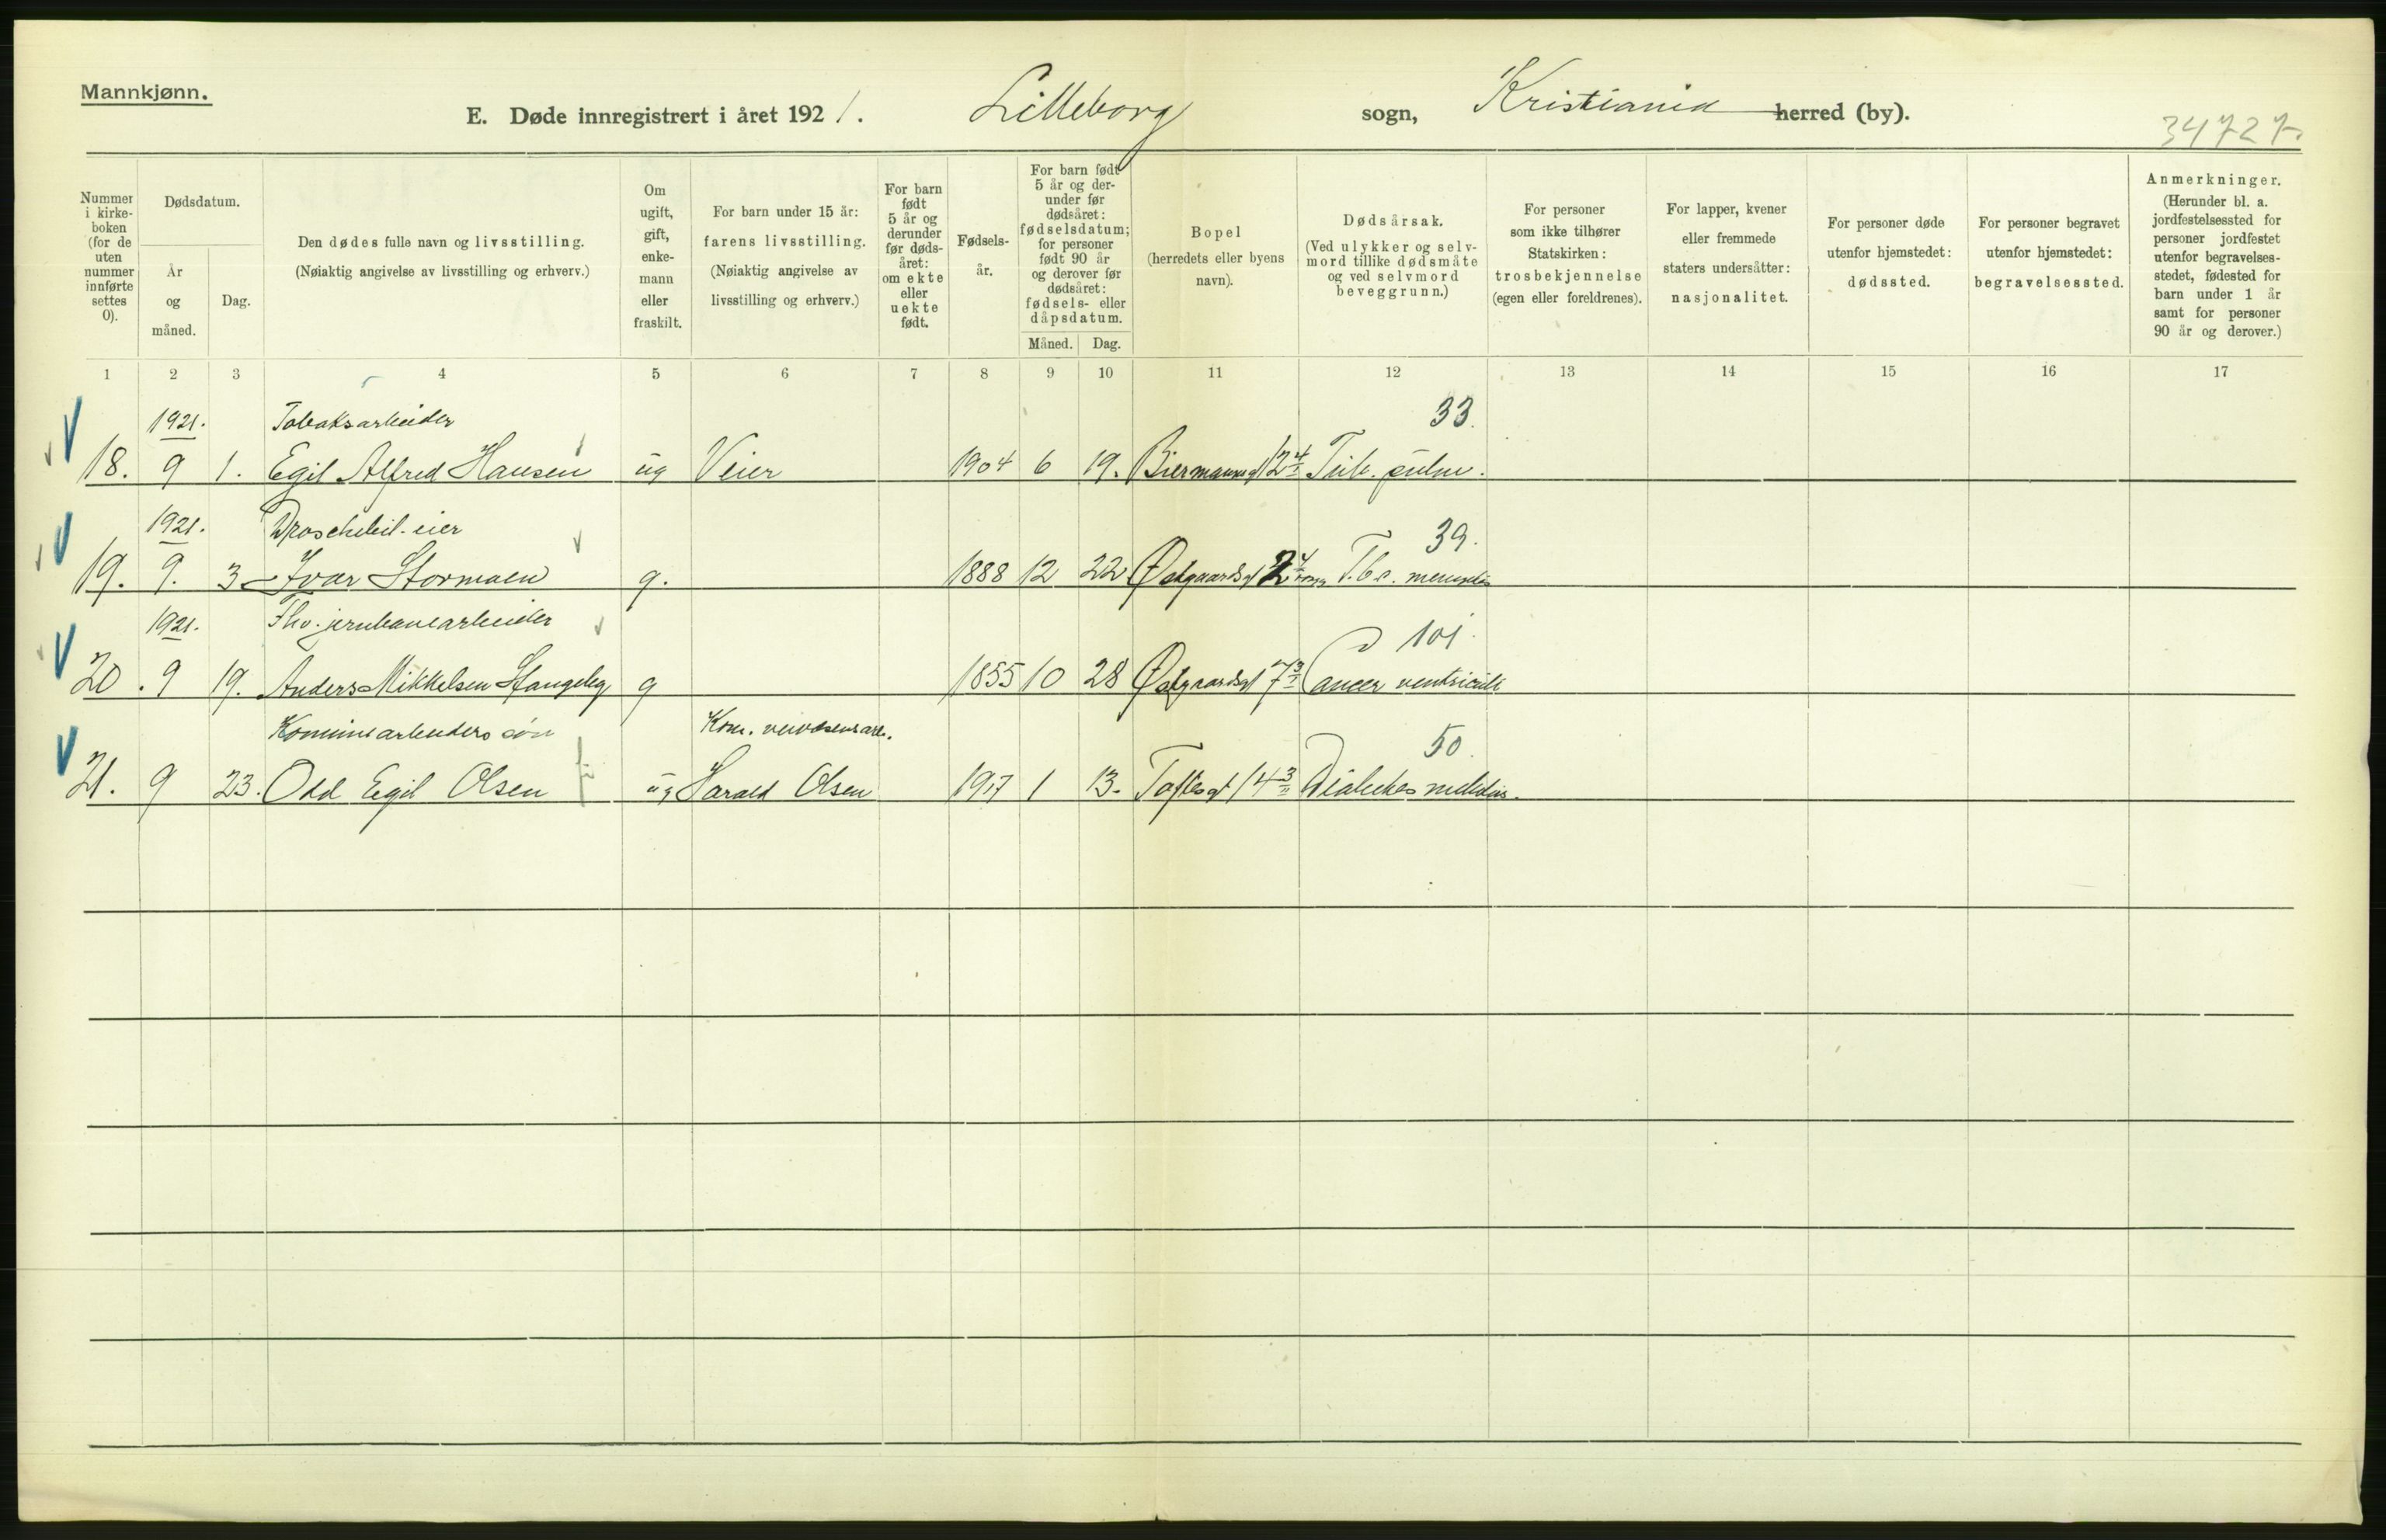 Mannkjønn.
E. Døde innregistrert i året 1921. Lilleborg sogn, Kristiania herred (by).
34727
Nummer i kirkeboken (for de uten nummer innførte settes 0).
Dødsdatum.
År og måned.
Dag.
Den dødes fulle navn og livsstilling.
(Nøiaktig angivelse av livsstilling og erhverv.)
Om ugift, gift, enkemann eller fraskilt.
For barn under 15 år:
farens livsstilling.
(Nøiaktig angivelse av livsstilling og erhverv.)
For barn født 5 år og derunder før dødsåret: om ekte eller uekte født.
Fødselsår.
For barn født 5 år og derunder før dødsåret: fødselsdatum; for personer født 90 år og derover før dødsåret: fødsels- eller dåpsdatum.
Måned. Dag.
Bopel
(herredets eller byens navn).
Dødsårsak.
(Ved ulykker og selvmord tillike dødsmåte og ved selvmord beveggrunn.)
For personer som ikke tilhører Statskirken:
trosbekjennelse
(egen eller foreldrenes).
For lapper, kvener eller fremmede staters undersåtter:
nasjonalitet.
For personer døde utenfor hjemstedet:
dødssted.
For personer begravet utenfor hjemstedet:
begravelsessted.
Anmerkninger.
(Herunder bl. a. jordfestelsessted for personer jordfestet utenfor begravelsesstedet, fødested for barn under 1 år samt for personer 90 år og derover.)
1 2 3 4 5 6 7 8 9 10 11 12 13 14 15 16 17
1921. Tobaksarbeider 33.
18. 9 1. Egil Alfred Hansen ug Veier 1904 6 19. Biermannsgt 12 4/I Tub. pulm.
1921. 39.
19. 9. 3 Ivar Stormoen g. 1888 12 22 Østgaardsgt T.b.c.
1921. Fhv. jernbanearbeider 101.
20. 9 19. Anders Mikkelsen g 1855 10 28 Østgaardsgt 7 3/I Cancer ventriculi
Kommunearbeiders søn Kom. veivæsensarb. 50.
21. 9 23. Odd Egil Olsen ug Harald Olsen 1917 1 13. Toftesgt 14 3/II Diabetes mellitus.